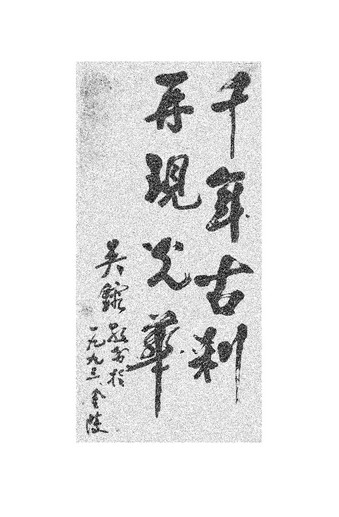 千年古刹
再現光華
吴
敬書於
一九九三金陵